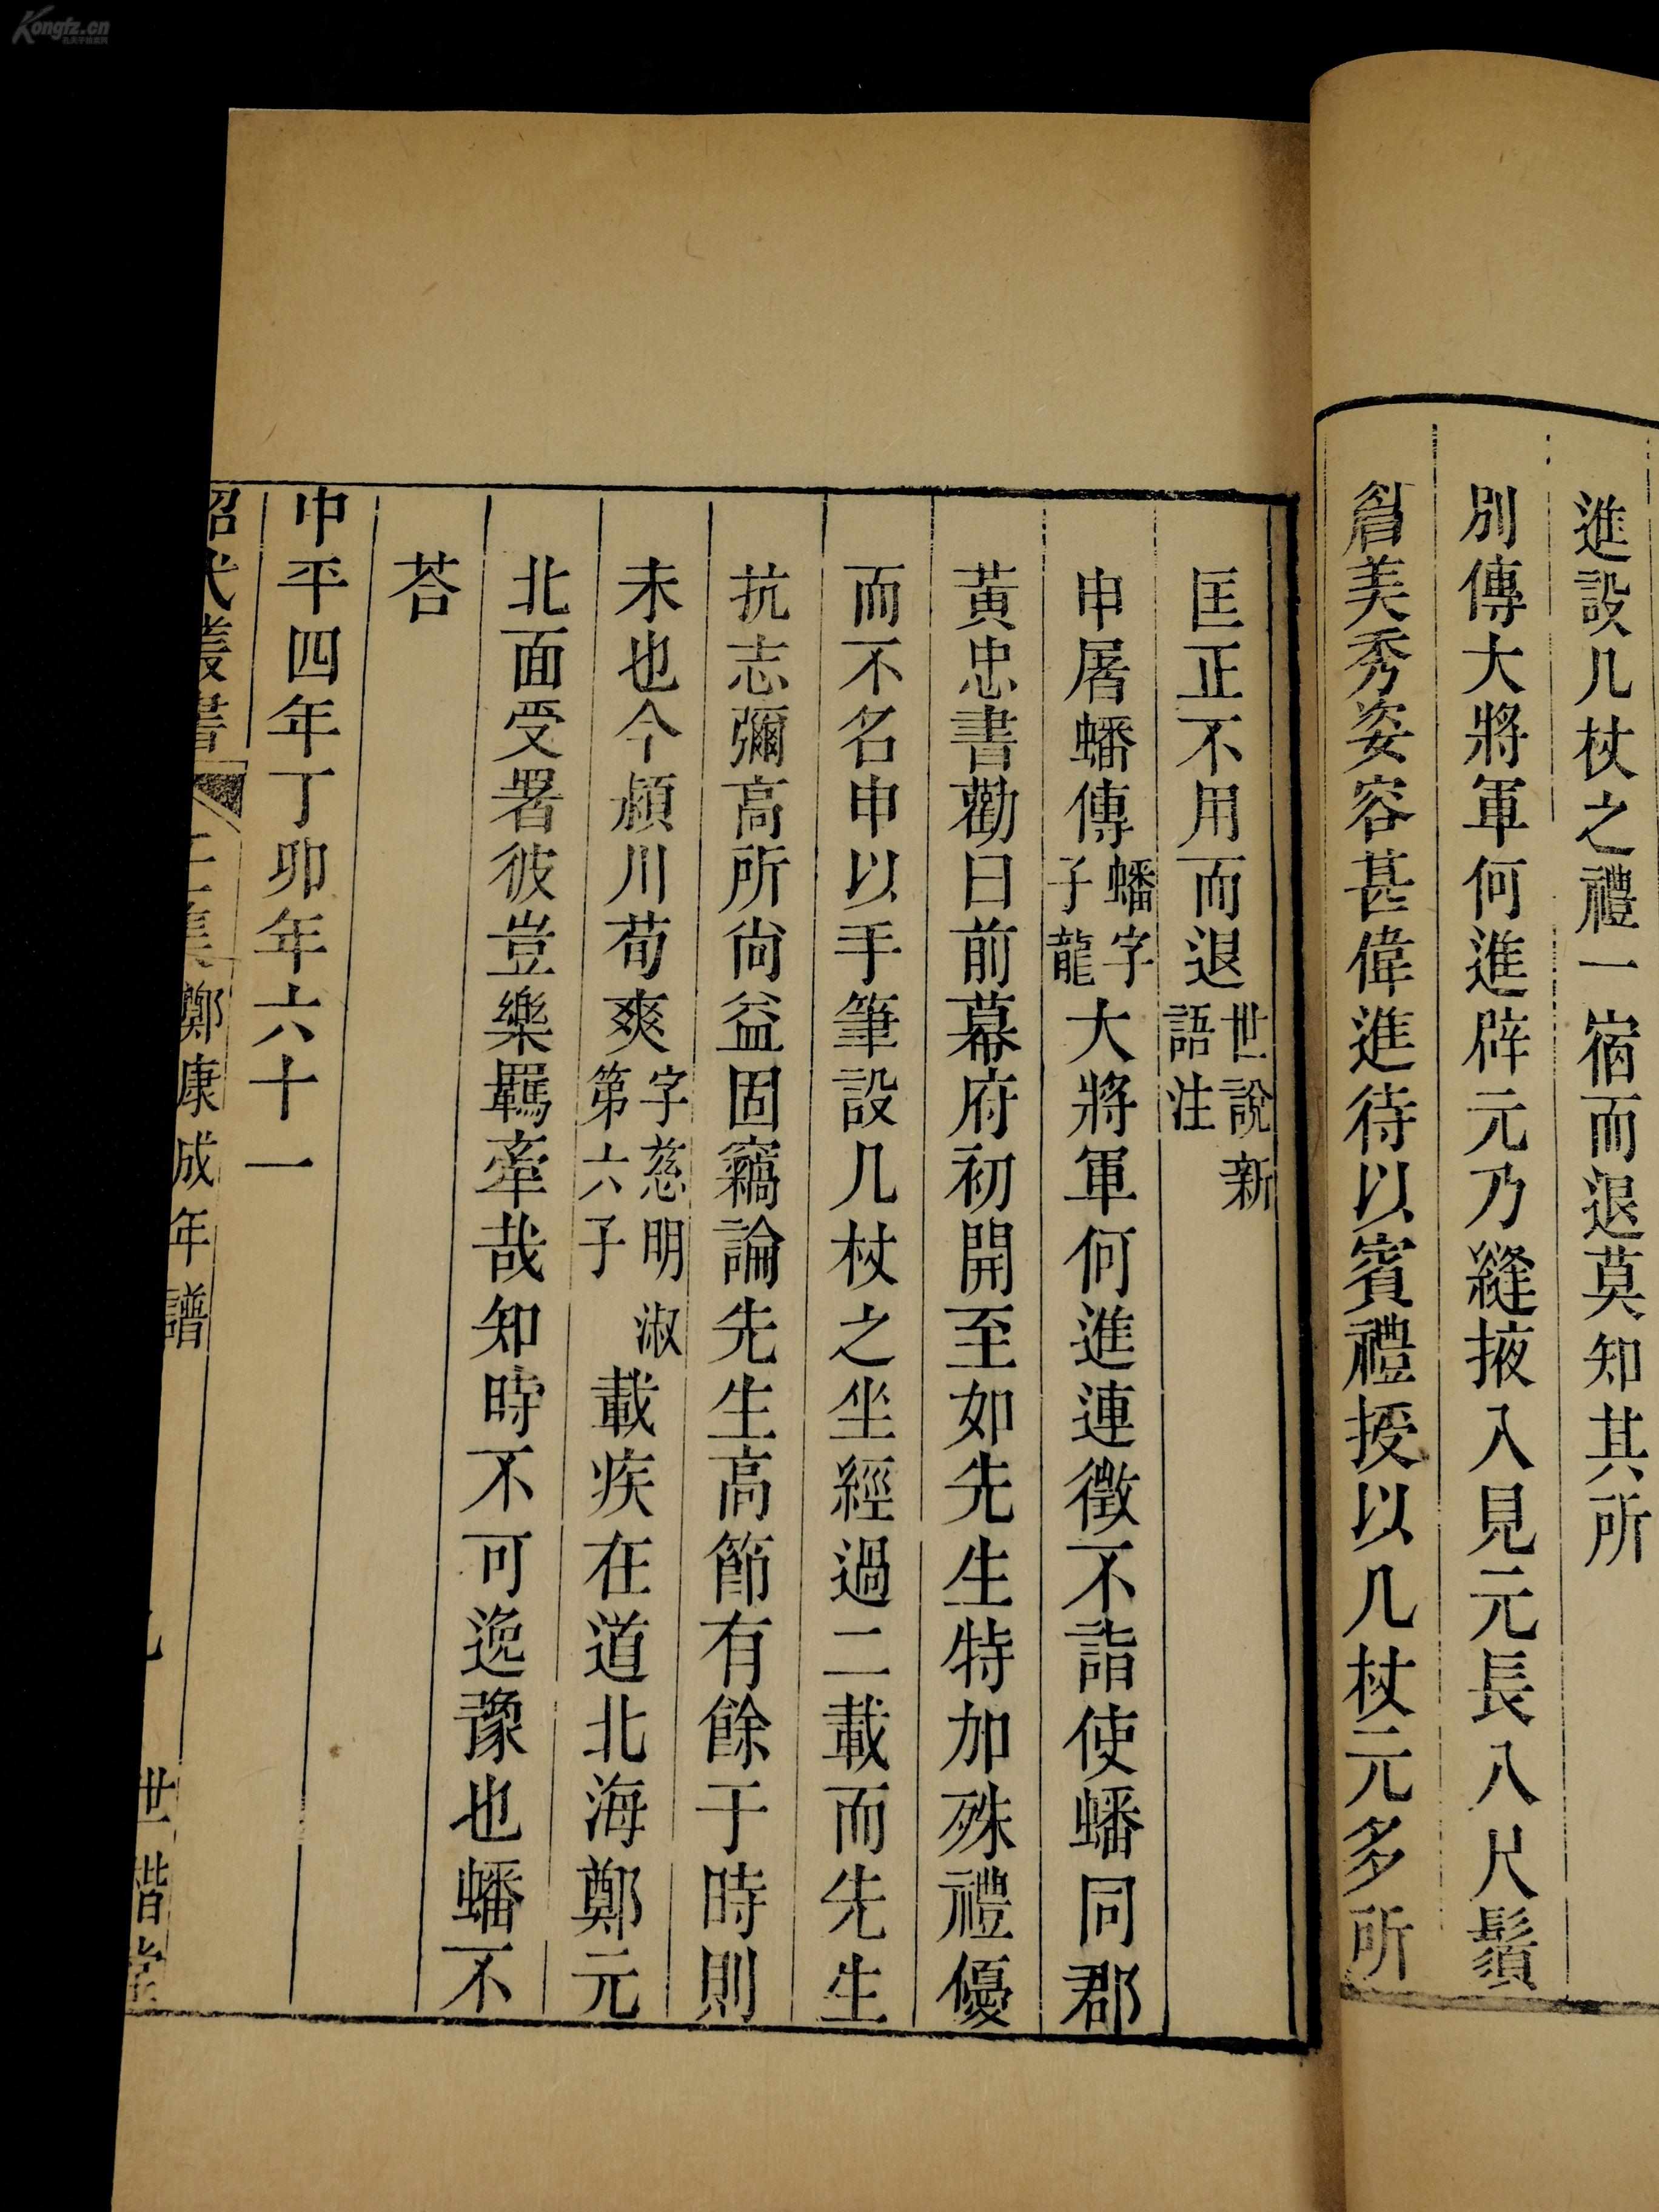 進設几杖之禮一宿而退莫知其所
別傳大將軍何進辟元乃縫掖入見元長八尺鬚
眉美秀姿容甚偉進待以賓禮授以几杖元多所
匡正不用而退世說新語注
申屠蟠傳蟠字子龍大將軍何進連徵不詣使蟠同郡
黃忠書勸曰前幕府初開至如先生特加殊禮優
而不名申以手筆設几杖之坐經過二載而先生
抗志彌高所尙益固竊論先生高節有餘于時則
未也今潁川荀爽字慈明淑第六子載疾在道北海鄭元
北面受署彼豈樂羈牽哉知時不可逸豫也蟠不
荅
中平四年丁卯年六十一
昭代叢書 壬集 鄭康成年譜 世楷堂
Kongfz.cn